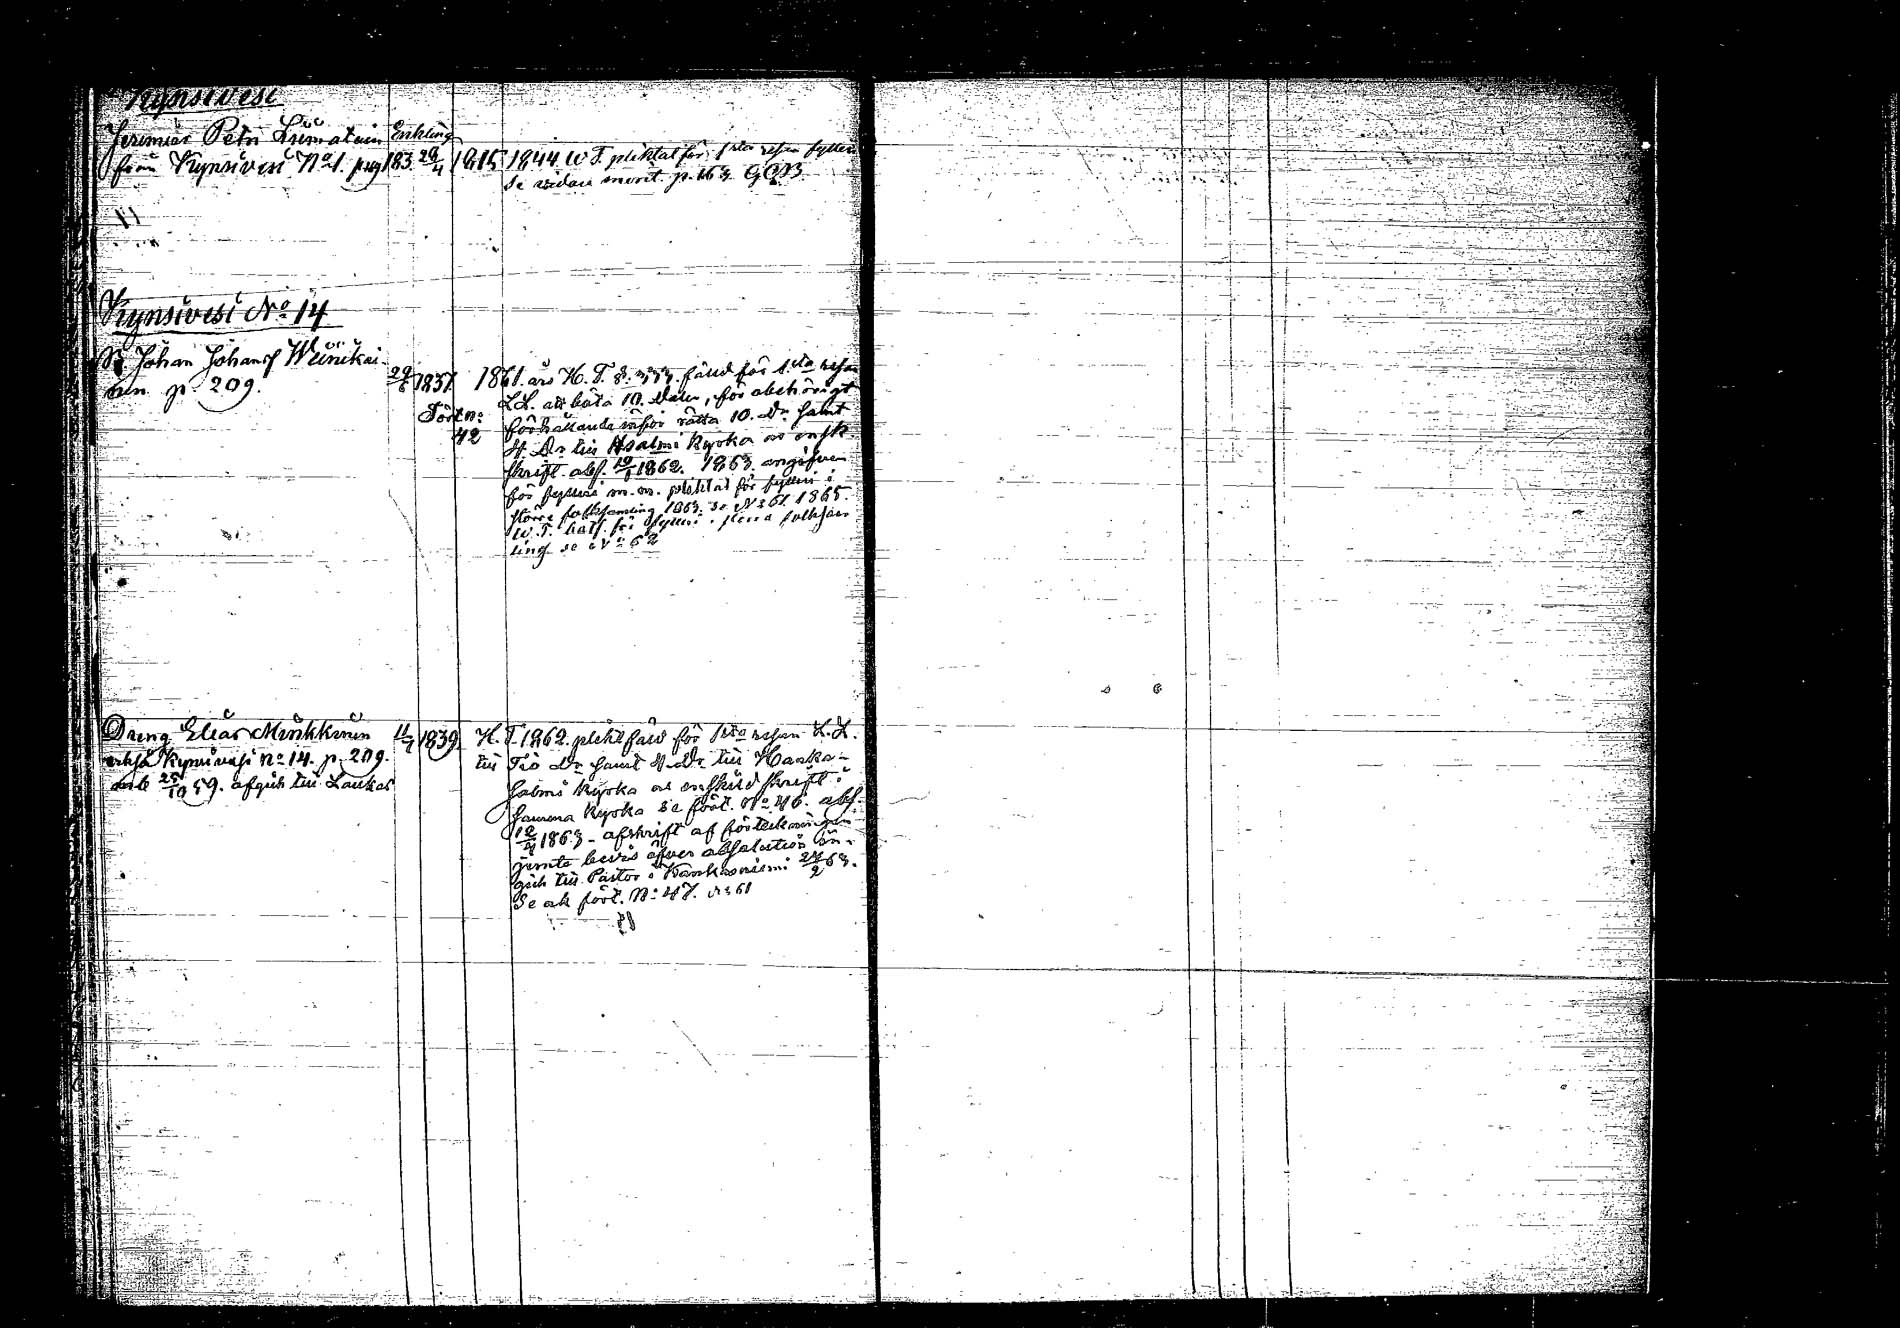 Kynsivesi
Jeremias Petri Liimatain Enkling
från Kynsivesi No 1. pag 183. 28/4 1815 1844 W T. pliktat för 1sta resan fylleri
Se vidare p. 163 G C B
Kynsivesi No 14
Johan Johansf Weinikai-
nen p. 209. 29 1837
Fört no
42
1861. års H. T. § fäld för 1sta resan
L.L. att böta 10. Daler, för obehörigt
förhållande inför rätta 10. Dr samt
4. Dr till kyrka o. ensk
skrift abs. 19/1 1862. 1863. angifven
för fylleri m.m. pliktat för fylleri i
större folksamling 1863. se No 61 1865.
W. T. fylleri folksam
ling se No 62
Dreng Elias Minkkinen 11/7 1839
Kynsivesi No 14. p. 209.
25/10 59. afgick till Laukas
H. T. 1862. plikt fäld för 1sta resan L. L.
till Tio Dr samt 4. Dr till Hanka-
salmi kyrka o. enskild skrift i
samma kyrka se fört. No 46. abs.
12/4 1863 - afskrift af förteckningen
jemte bevis öfver absolution än-
gick till Pastor i 24/2 63.
Se ock fört. No 47.